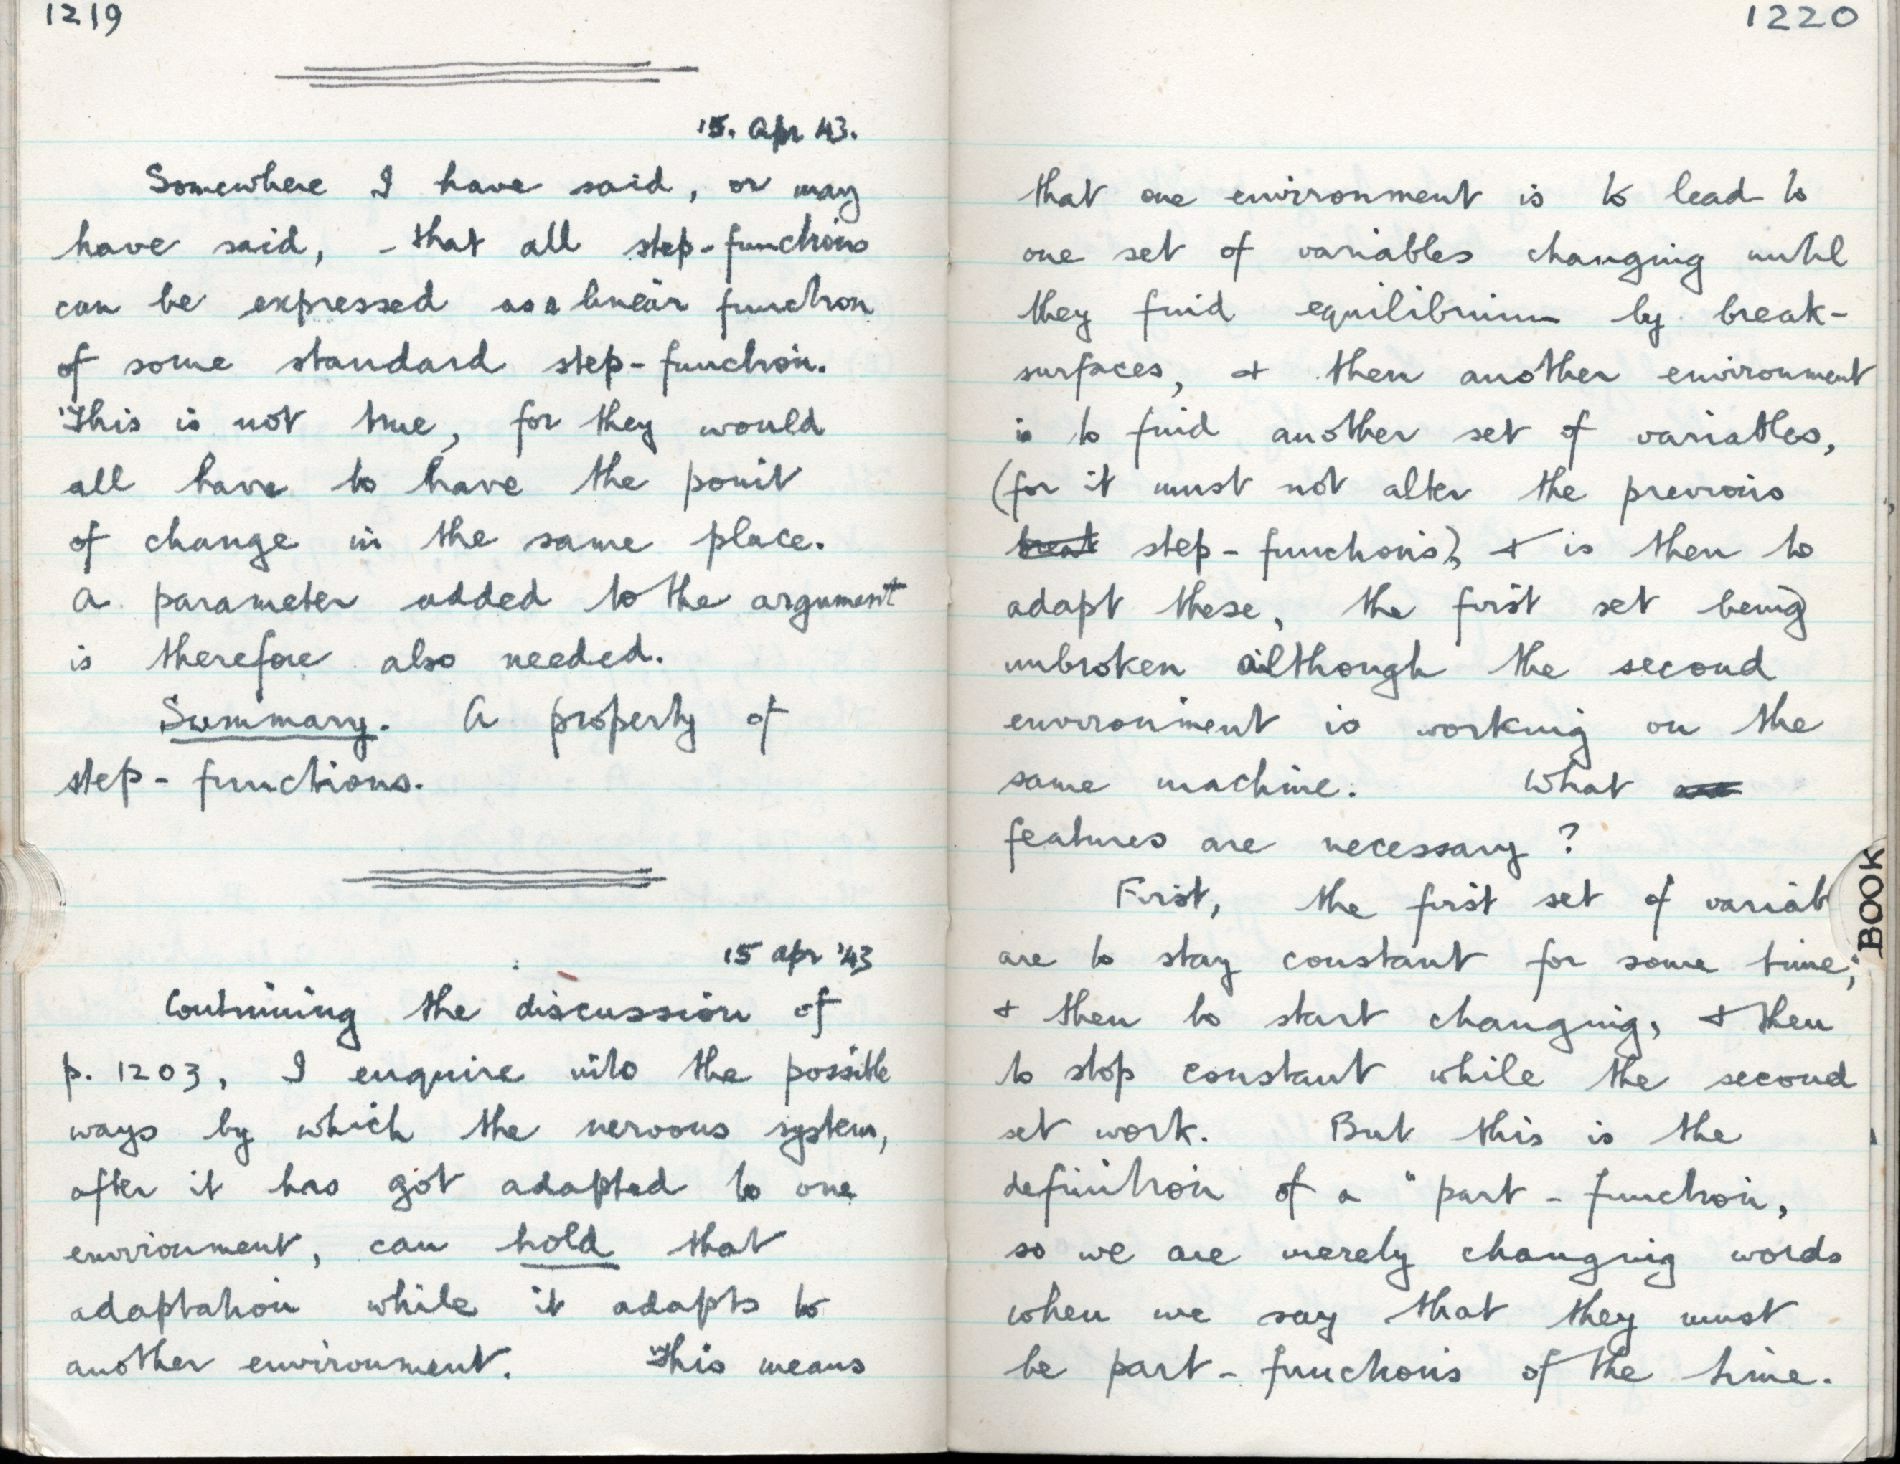 1219
15. Apr 43.
Somewhere I have said, or may
have said, - that all step-functions
can be expressed as a linear function
of some standard step-function.
This is not true, for they would
all have to have the point
of change in the same place.
A parameter added to the argument
is therefore also needed.
Summary. A property of
step-functions.
15 Apr '43
Continuing the discussion of
p. 1203, I enquire into the possible
ways by which the nervous system,
after it has got adapted to one
environment, can hold that
adaptation while it adapts to
another environment. This means
1220
that one environment is to lead to
one set of variables changing until
they find equilibrium by break-
surfaces, & then another environment
is to find another set of variables,
(for it must not alter the previous
break step-functions), & is then to
adapt these, the first set being
unbroken although the second
environment is working on the
same machine. What
features are necessary?
First, the first set of variab
are to stay constant for some time,
& then to start changing, & then
to stop constant while the second
set work. But this is the
definition of a "part-function,
so we are merely changing words
when we say that they must
be part-functions of the time.
BOOK